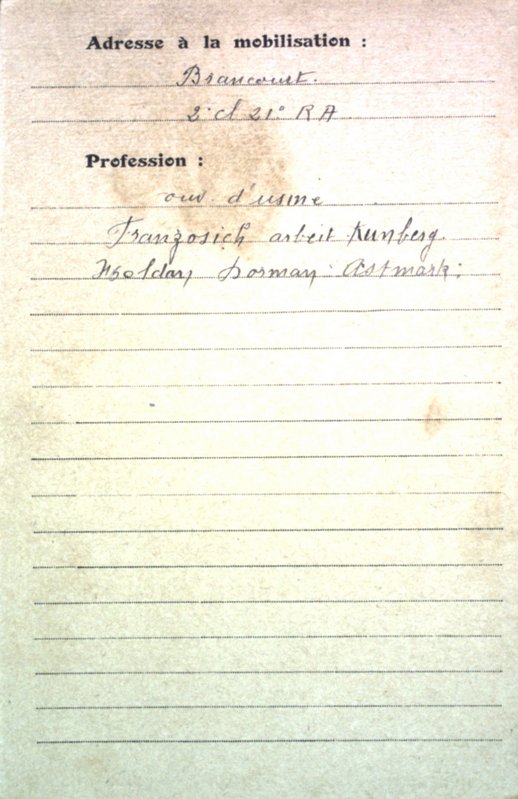 Adresse à la mobilisation :
Brancourt.
2° cl 21° RA.
Profession :
ouv d'usine
Franzosich arbeit Kunberg.
dorman Astmark.